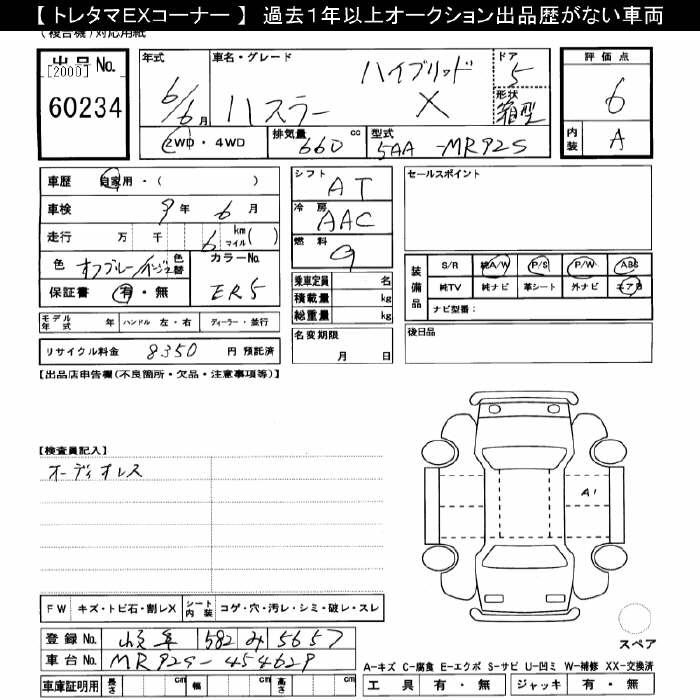 【 トレタマEXコーナー 】 過去1年以上オークション出品歴がない車両
(複合機)対応用紙
出品No.
[2000]
60234
年式
6/6月
車名・グレード
ハスラー ハイブリッド X
ドア
5
形状
箱型
評価点
6
内装
A
2WD・4WD
排気量 660 cc
型式 5AA-MR92S
車歴 自家用・( )
車検 9年 6月
走行 万 千 6 km マイル( )
色 オフブルー/ 色替
カラーNo.
ER5
保証書 有・無
モデル年式 年 ハンドル 左・右 ディーラー・並行
リサイクル料金 8350 円 預託済
シフト
AT
冷房
AAC
燃料
G
乗車定員 名
積載量 kg
総重量 kg
名変期限
月 日
セールスポイント
装備品
S/R 純A/W P/S P/W ABS
純TV 純ナビ 革シート 外ナビ エアB
ナビ型番:
後日品
【出品店申告欄(不良箇所・欠品・注意事項等)】
【検査員記入】
オーディオレス
A1
FW キズ・トビ石・割レX シート内装 コゲ・穴・汚レ・シミ・破レ・スレ
登録No. 岐阜 582 み 5657
車台No. MR92S-454629
車庫証明用 長さ cm 幅 cm 高さ cm
スペア
A-キズ C-腐食 E-エクボ S-サビ U-凹ミ W-補修 XX-交換済
工具 有・無 ジャッキ 有・無